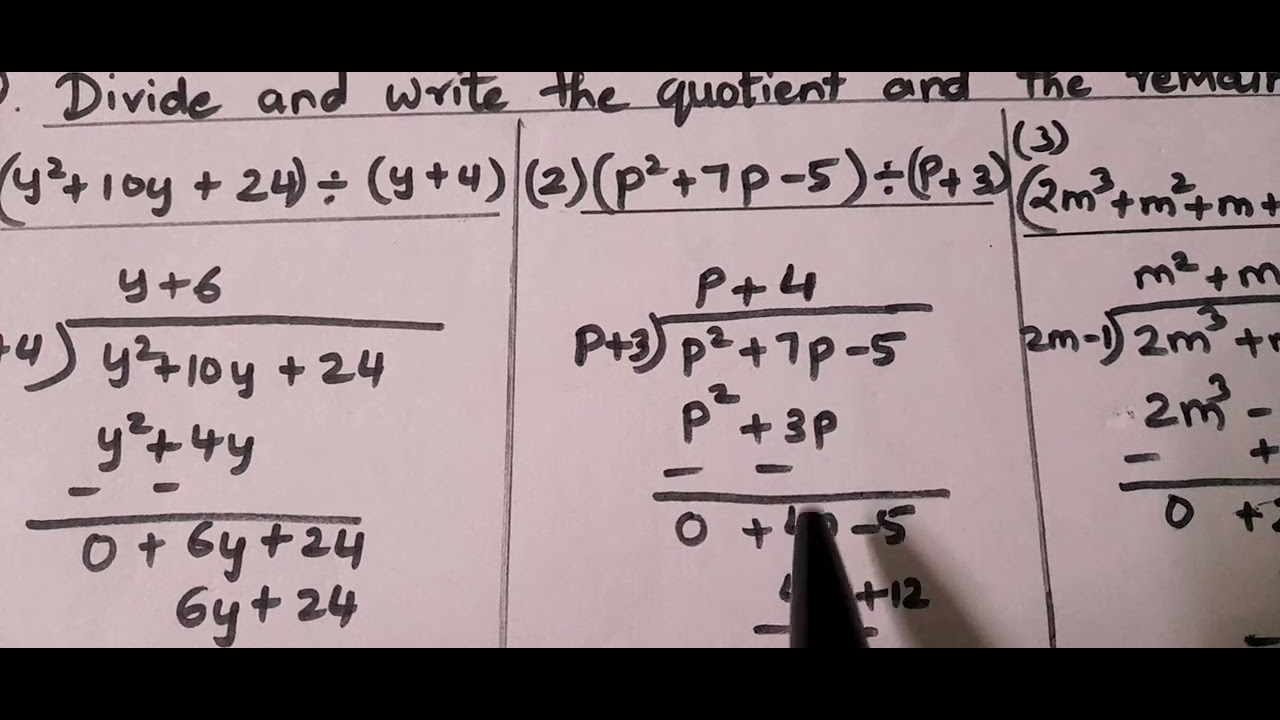 ). Divide and write the quotient and the remain
(y²+10y + 24) ÷ (y+4)
y+6
+4) y²+10y + 24
y²+ 4y
- -
0 + 6y + 24
6y + 24
(2) (p²+7p-5) ÷ (p+3)
p+4
p+3) p²+7p-5
p² + 3p
- -
0 + -5
+12
-
(3)
(2m³+m²+m+
m²+m
2m-1) 2m³ +
2m³ -
- +
0 +
-